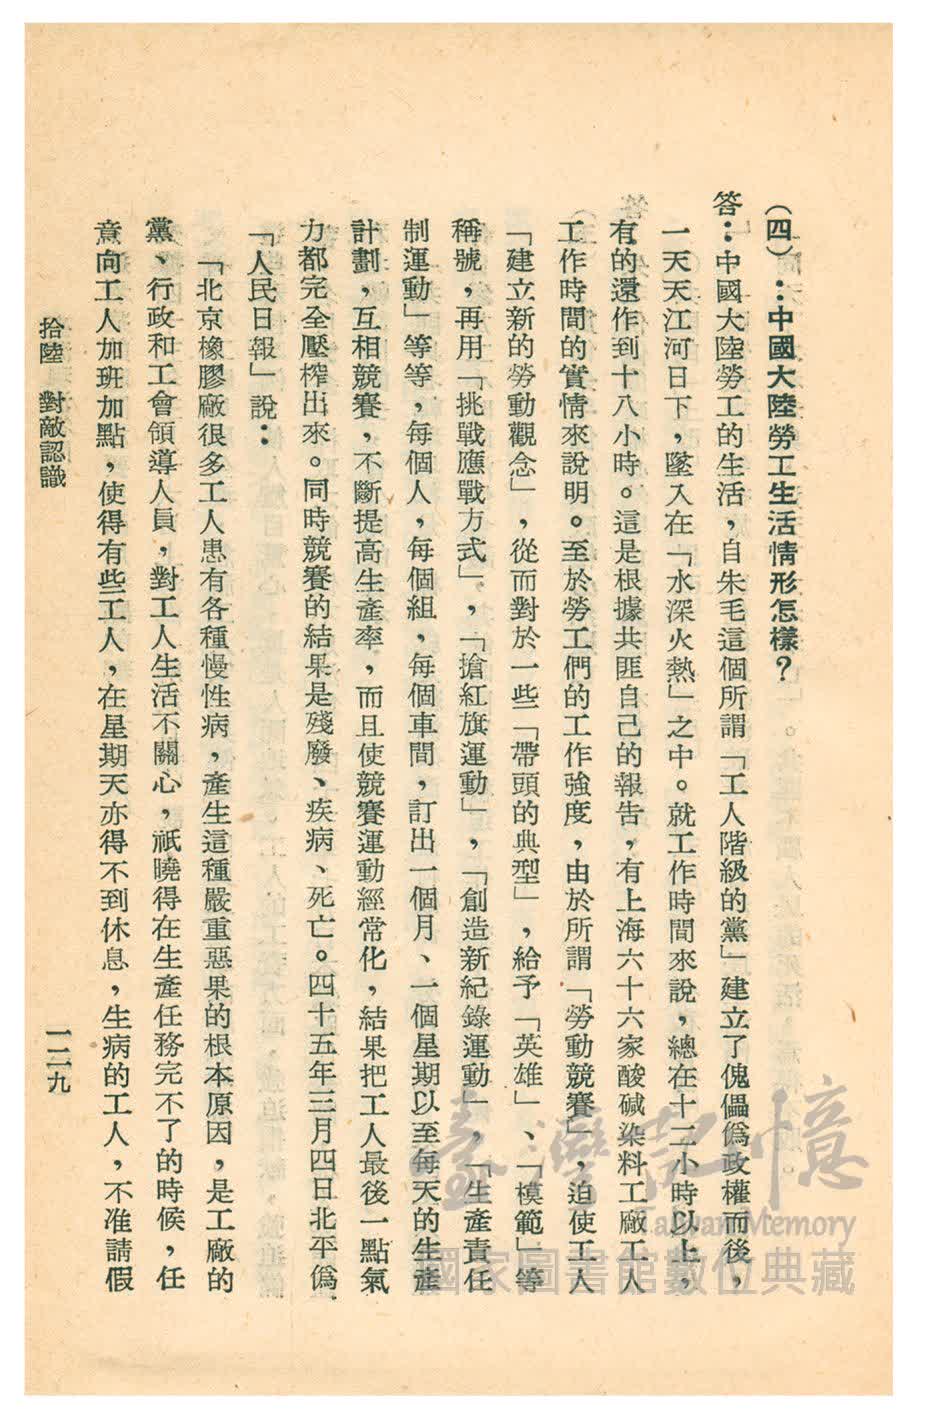 (四)：中國大陸勞工生活情形怎樣？
答：中國大陸勞工的生活，自朱毛這個所謂「工人階級的黨」建立了傀儡僞政權而後，
一天天江河日下，墜入在「水深火熱」之中。就工作時間來說，總在十二小時以上，
有的還作到十八小時。這是根據共匪自己的報告，有上海六十六家酸碱染料工廠工人
工作時間的實情來說明。至於勞工們的工作強度，由於所謂「勞動競賽」，迫使工人
「建立新的勞動觀念」，從而對於一些「帶頭的典型」，給予「英雄」、「模範」等
稱號，再用「挑戰應戰方式」，「搶紅旗運動」，「創造新紀錄運動」，「生產責任
制運動」等等，每個人，每個組，每個車間，訂出一個月、一個星期以至每天的生產
計劃，互相競賽，不斷提高生產率，而且使競賽運動經常化，結果把工人最後一點氣
力都完全壓榨出來。同時競賽的結果是殘廢、疾病、死亡。四十五年三月四日北平僞
「人民日報」說：
「北京橡膠廠很多工人患有各種慢性病，產生這種嚴重惡果的根本原因，是工廠的
黨、行政和工會領導人員，對工人生活不關心，祇曉得在生產任務完不了的時候，任
意向工人加班加點，使得有些工人，在星期天亦得不到休息，生病的工人，不准請假
拾陸　對敵認識
一二九
臺灣記憶
Taiwan Memory
國家圖書館數位典藏